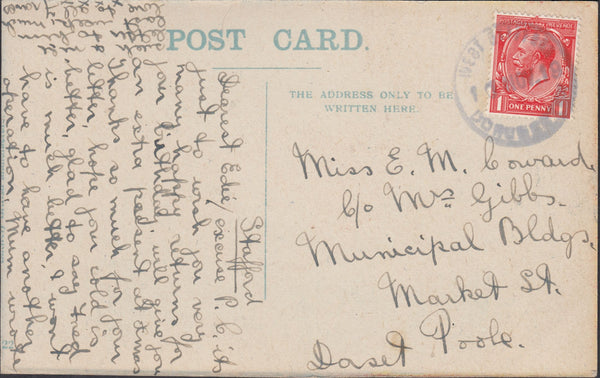 POST CARD.
THE ADDRESS ONLY TO BE
WRITTEN HERE.
POSTAGE REVENUE
1 ONE PENNY 1
WEST
Stafford
Dearest Edie, excuse P.C. its
just to wish you very
many happy returns for
your birthday will give you
an extra present at Xmas
Thanks so much for your
letter, hope your cold is
better, glad to say Fred
is much better, I won't
have to have another
operation, Mum wrote
Miss E. M. Coward.
c/o Mrs Gibbs.
Municipal Bldgs.
Market St.
Poole.
Dorset
22